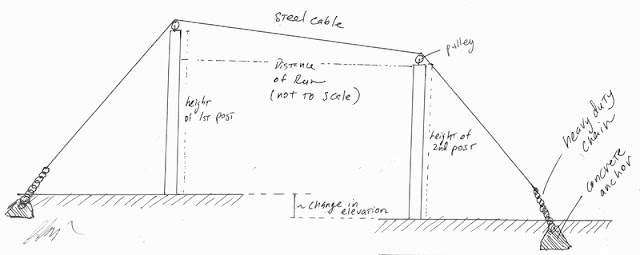 steel cable
pulley
Distance
of Run
(not to scale)
height
of 1st post
height of
2nd post
heavy duty
chain
concrete
anchor
~ change in
elevation